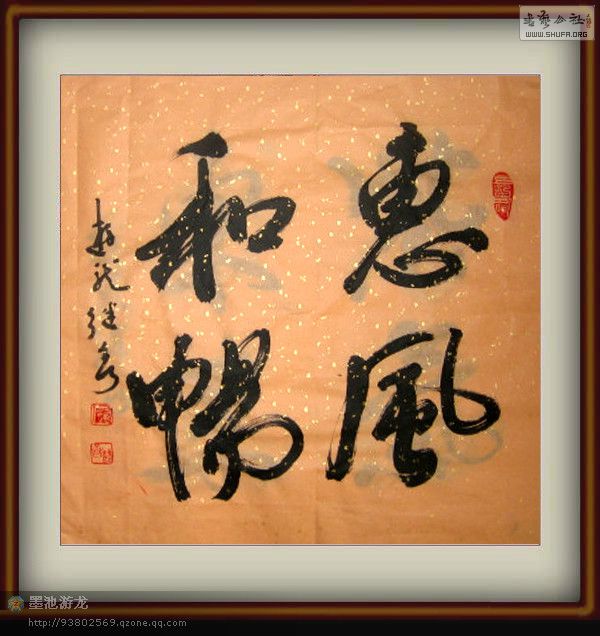 惠風
和暢
书艺公社
WWW.SHUFA.ORG
墨池游龙
http://93802569.qzone.qq.com